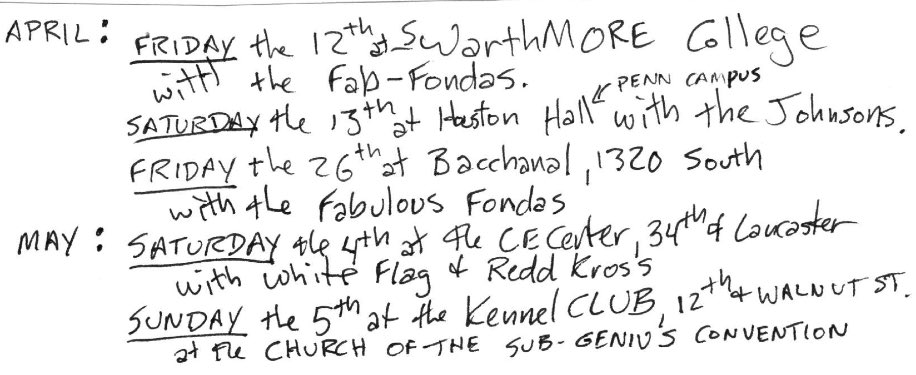 APRIL: FRIDAY the 12th at SwarthMORE College
with the Fab-Fondas.
PENN CAMPUS
SATURDAY the 13th at Huston Hall with the Johnsons.
FRIDAY the 26th at Bacchanal, 1320 South
with the Fabulous Fondas
MAY: SATURDAY the 4th at the CE Center, 34th & Lancaster
with White Flag & Redd Kross
SUNDAY the 5th at the Kennel CLUB, 12th & WALNUT ST.
at the CHURCH OF THE SUB-GENIUS CONVENTION